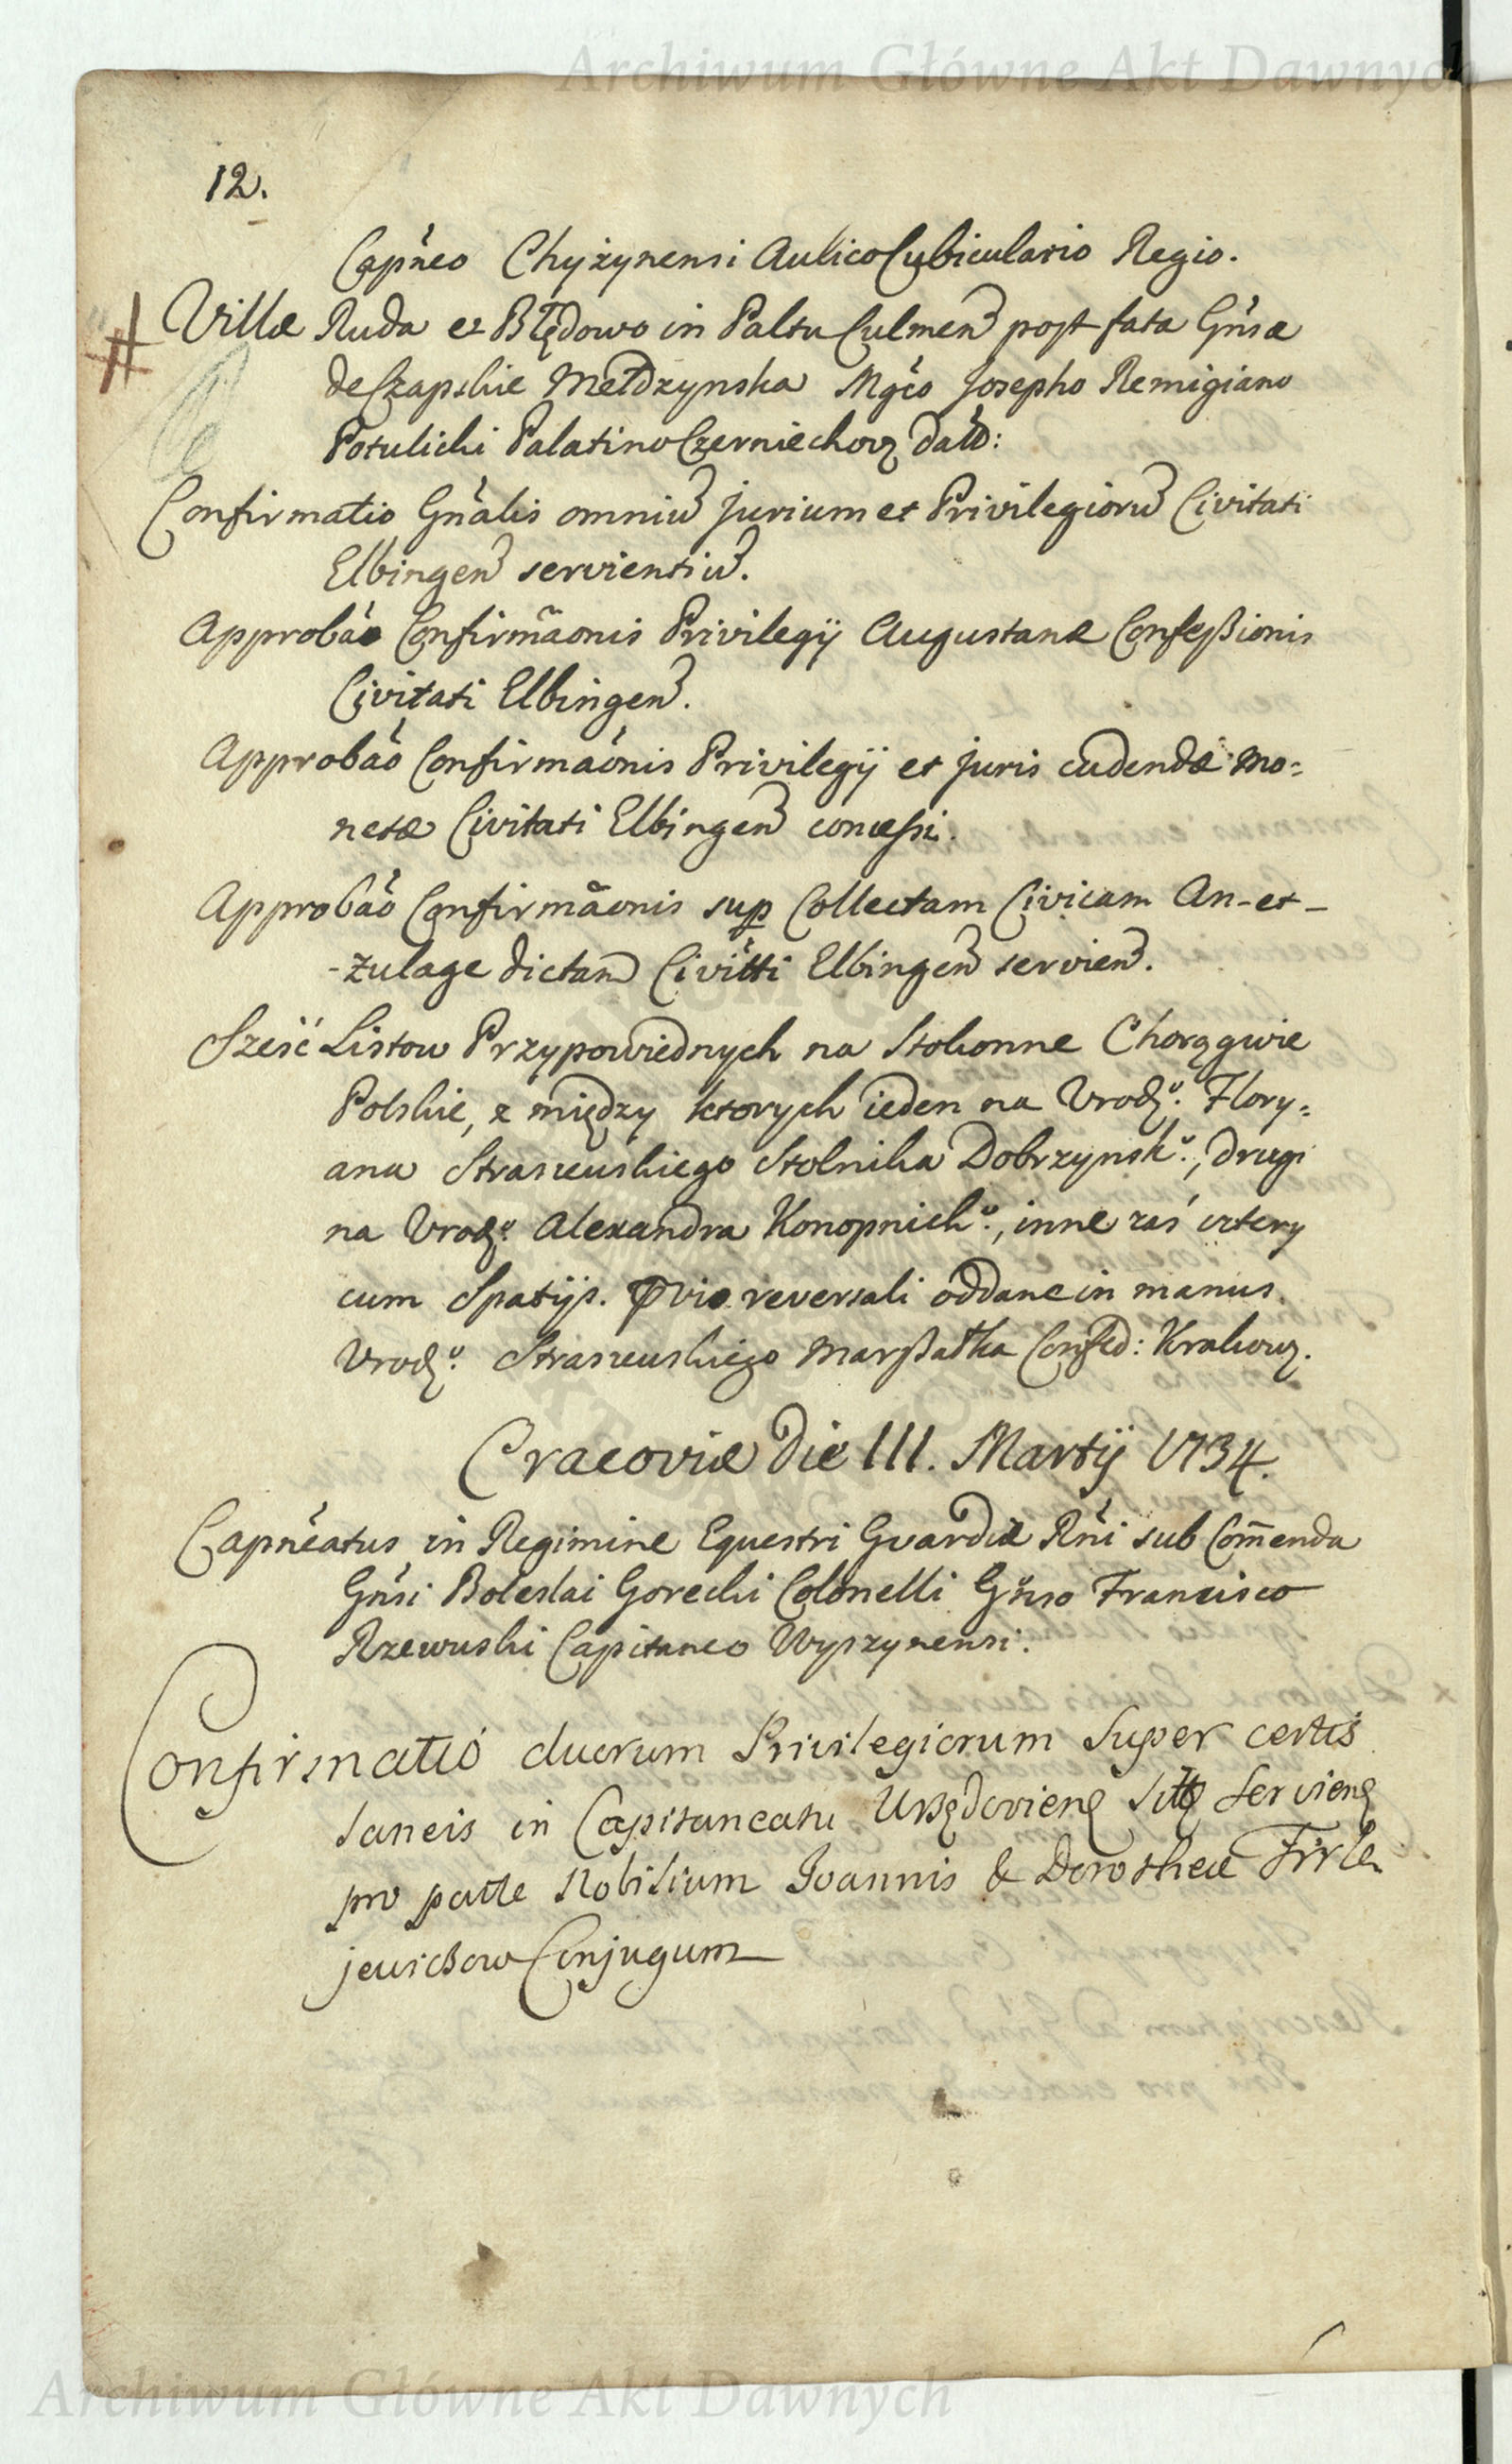 Archiwum Główne Akt Dawnych
12.
Capńeo Chyżynensi Aulico Cubiculario Regio.
Villæ Ruda et Błędowo in Paltu Culmen̄ post fata Gńsæ
de Czapskie Mełdzynska Mgćo Josepho Remigiano
Potulicki Palatino Czerniechow datæ:
Confirmatio Gńalis omniū jurium et Privilegiorū Civitati
Elbingen̄ servientiū.
Approbaó Confirmãonis Privilegÿ Augustanæ Confeßionis
Civitati Elbingen̄.
Approbaó Confirmaónis Privilegÿ et juris cudendæ mo=
netæ Civitati Elbingen̄ concessi.
Approbaó Confirmãonis sup Collectam Civicam An-et-
-zulage dictam̄ Civitti Elbingen̄ servien̄.
Sześć Listow Przypowiednych na Stokonne Chorągwie
Polskie, z między ktorych ieden na Urodz°. Flory=
ana Straszewskiego Stolnika Dobrzynsk°., drugi
na Urodz°. Alexandra Konopnick°., inne zaś cztery
cum Spatijs. reversali oddane in manus
Urodz°. Straszewskiego Marßałka Confed: Krakow.
Cracoviæ Die III. Martÿ 1734.
Capńeatus in Regimine Equestri Gvardiæ Rńi sub Com̄enda
Gńsi Boleslai Gorecki Colonelli Gńso Francisco
Rzewuski Capitaneo Wyszynensi.
Confirmatio duorum Privilegiorum Super certis
laneis in Capitaneatu Urzędovien Servien
pro parte Nobilium Joannis & Dorotheæ Firle
jewiczow Conjugum
Archiwum Główne Akt Dawnych